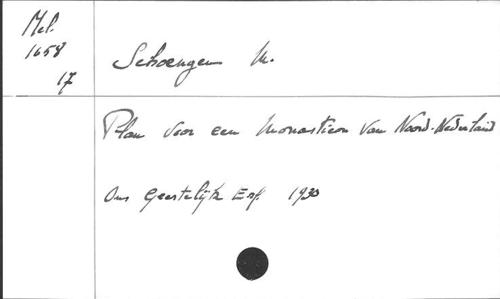 Mel.
1658
17
Schoengen M.
Plan voor een Monasticon van Noord-Nederland
Ons Geestelijk Erf. 1930